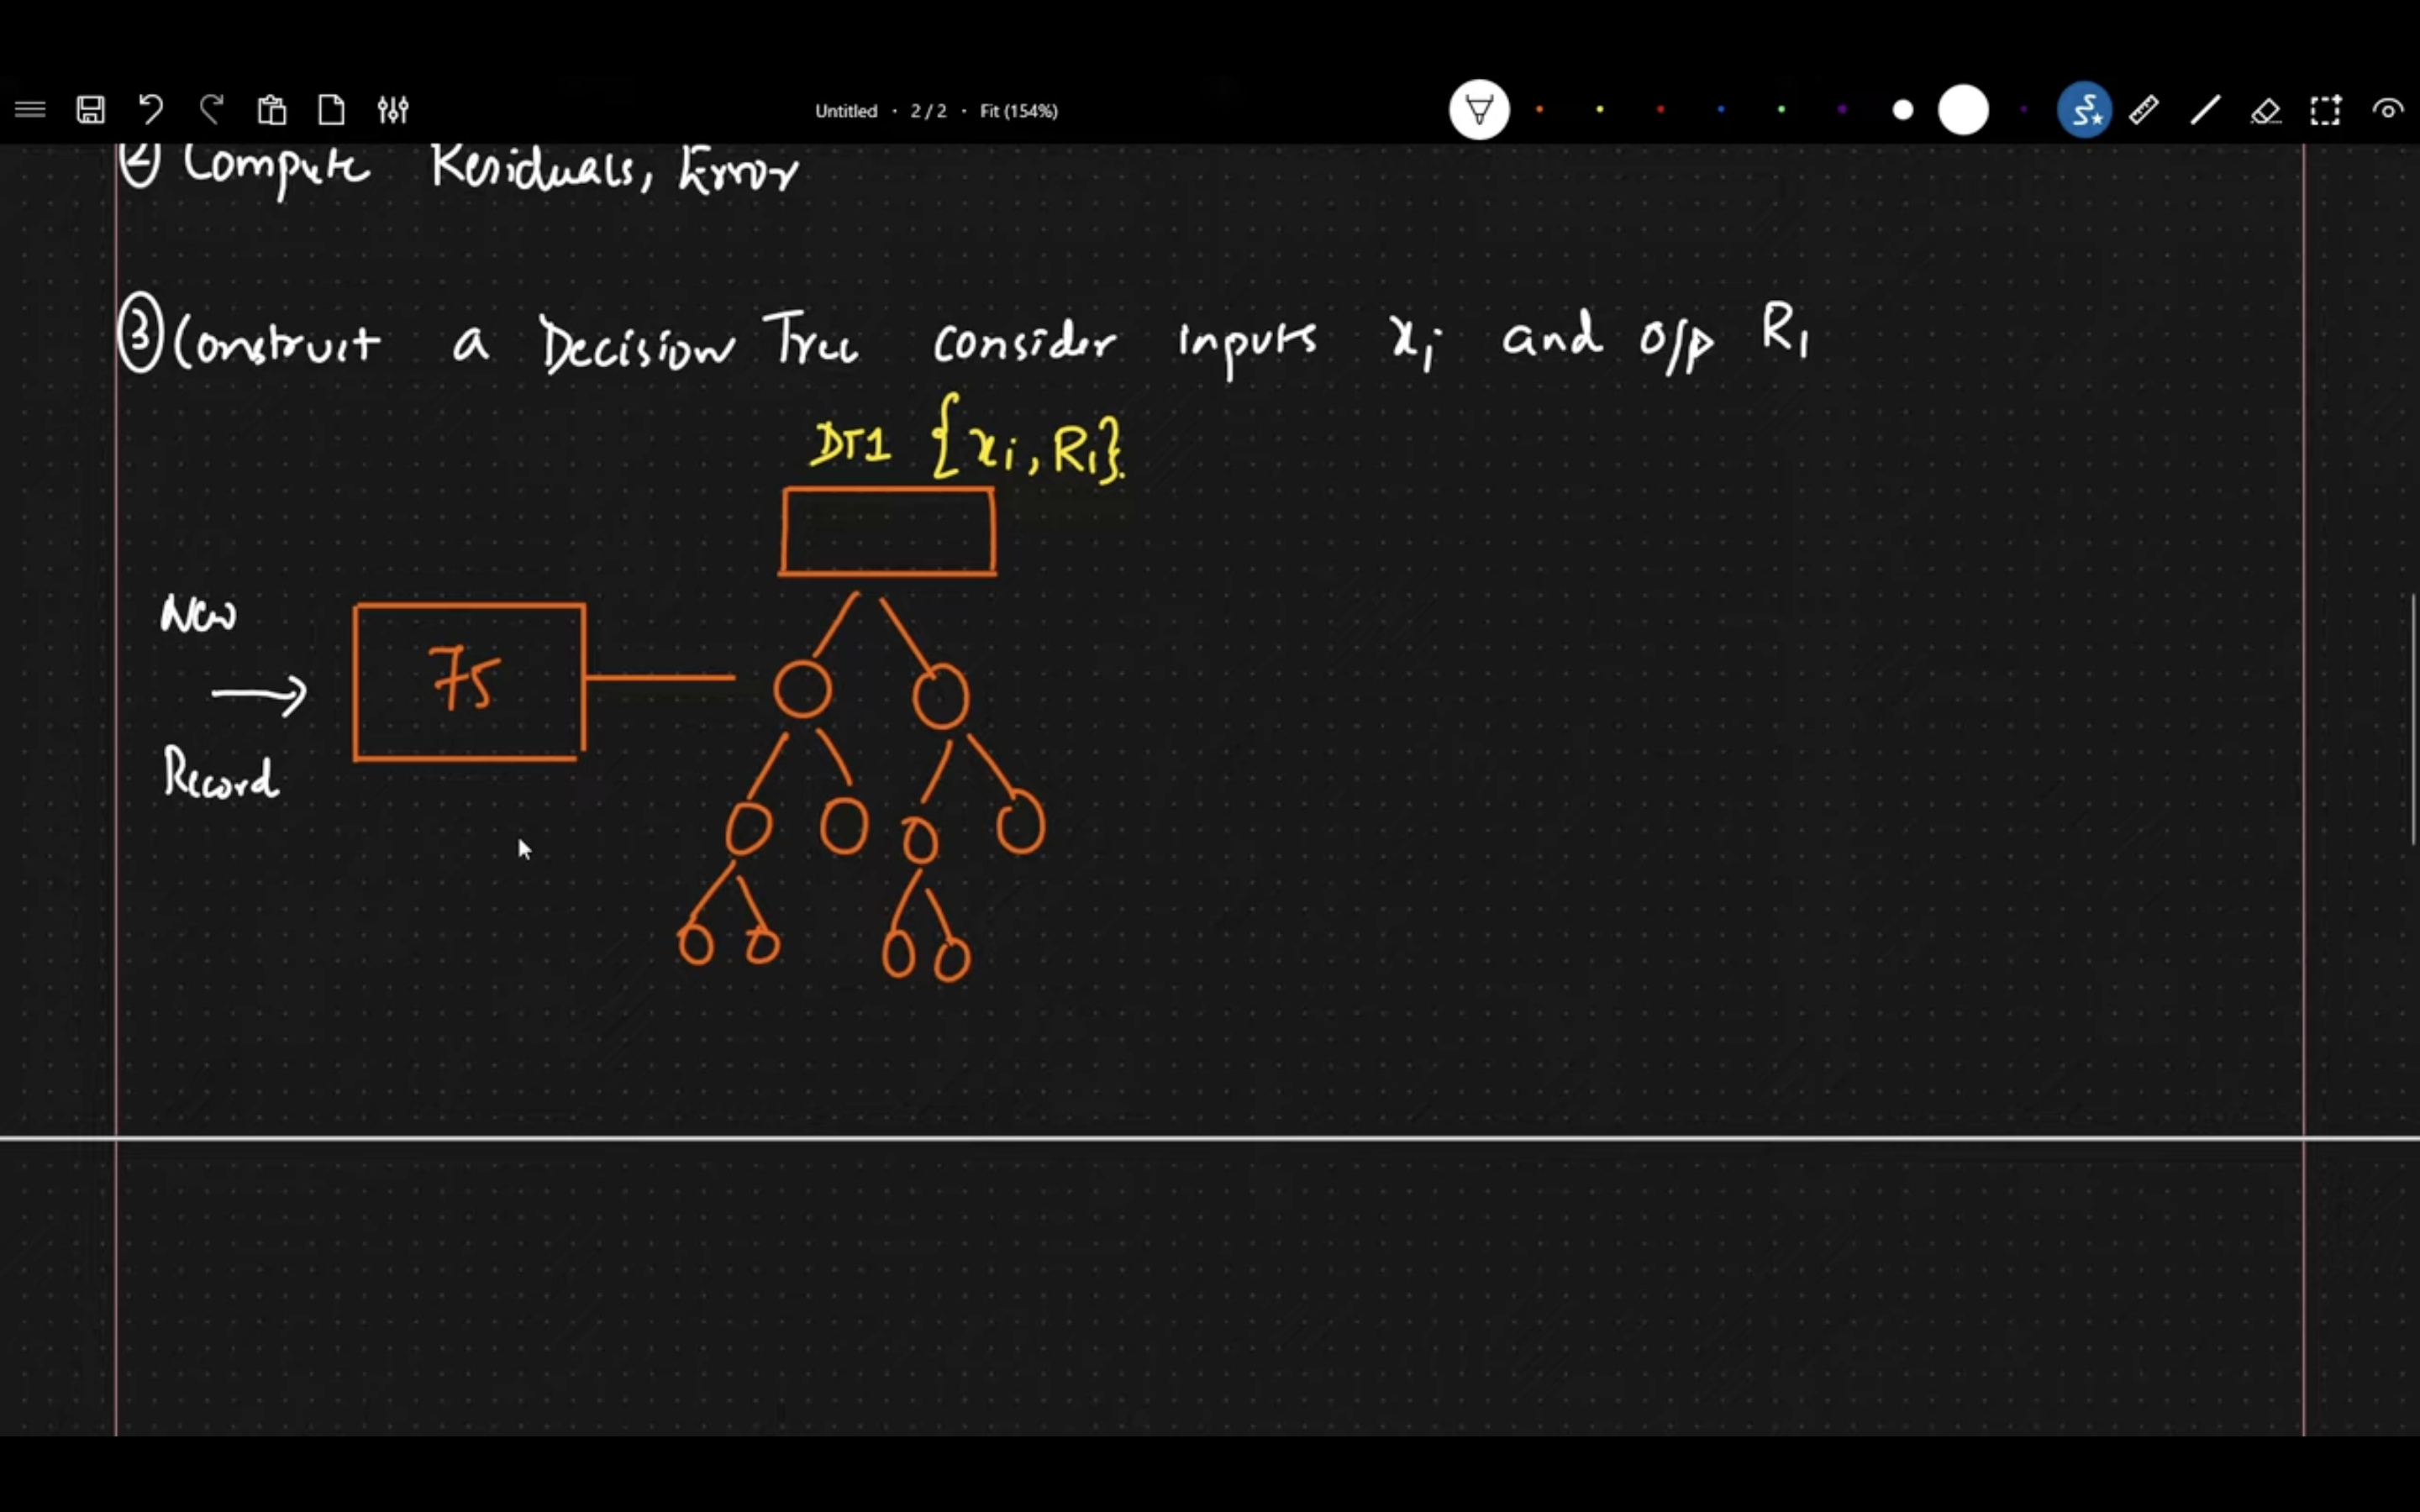 Untitled · 2 / 2 · Fit (154%)
② Compute Residuals, Error
③ Construct a Decision Tree consider inputs xi and o/p R1
DT1 {xi, R1}.
New
75
Record